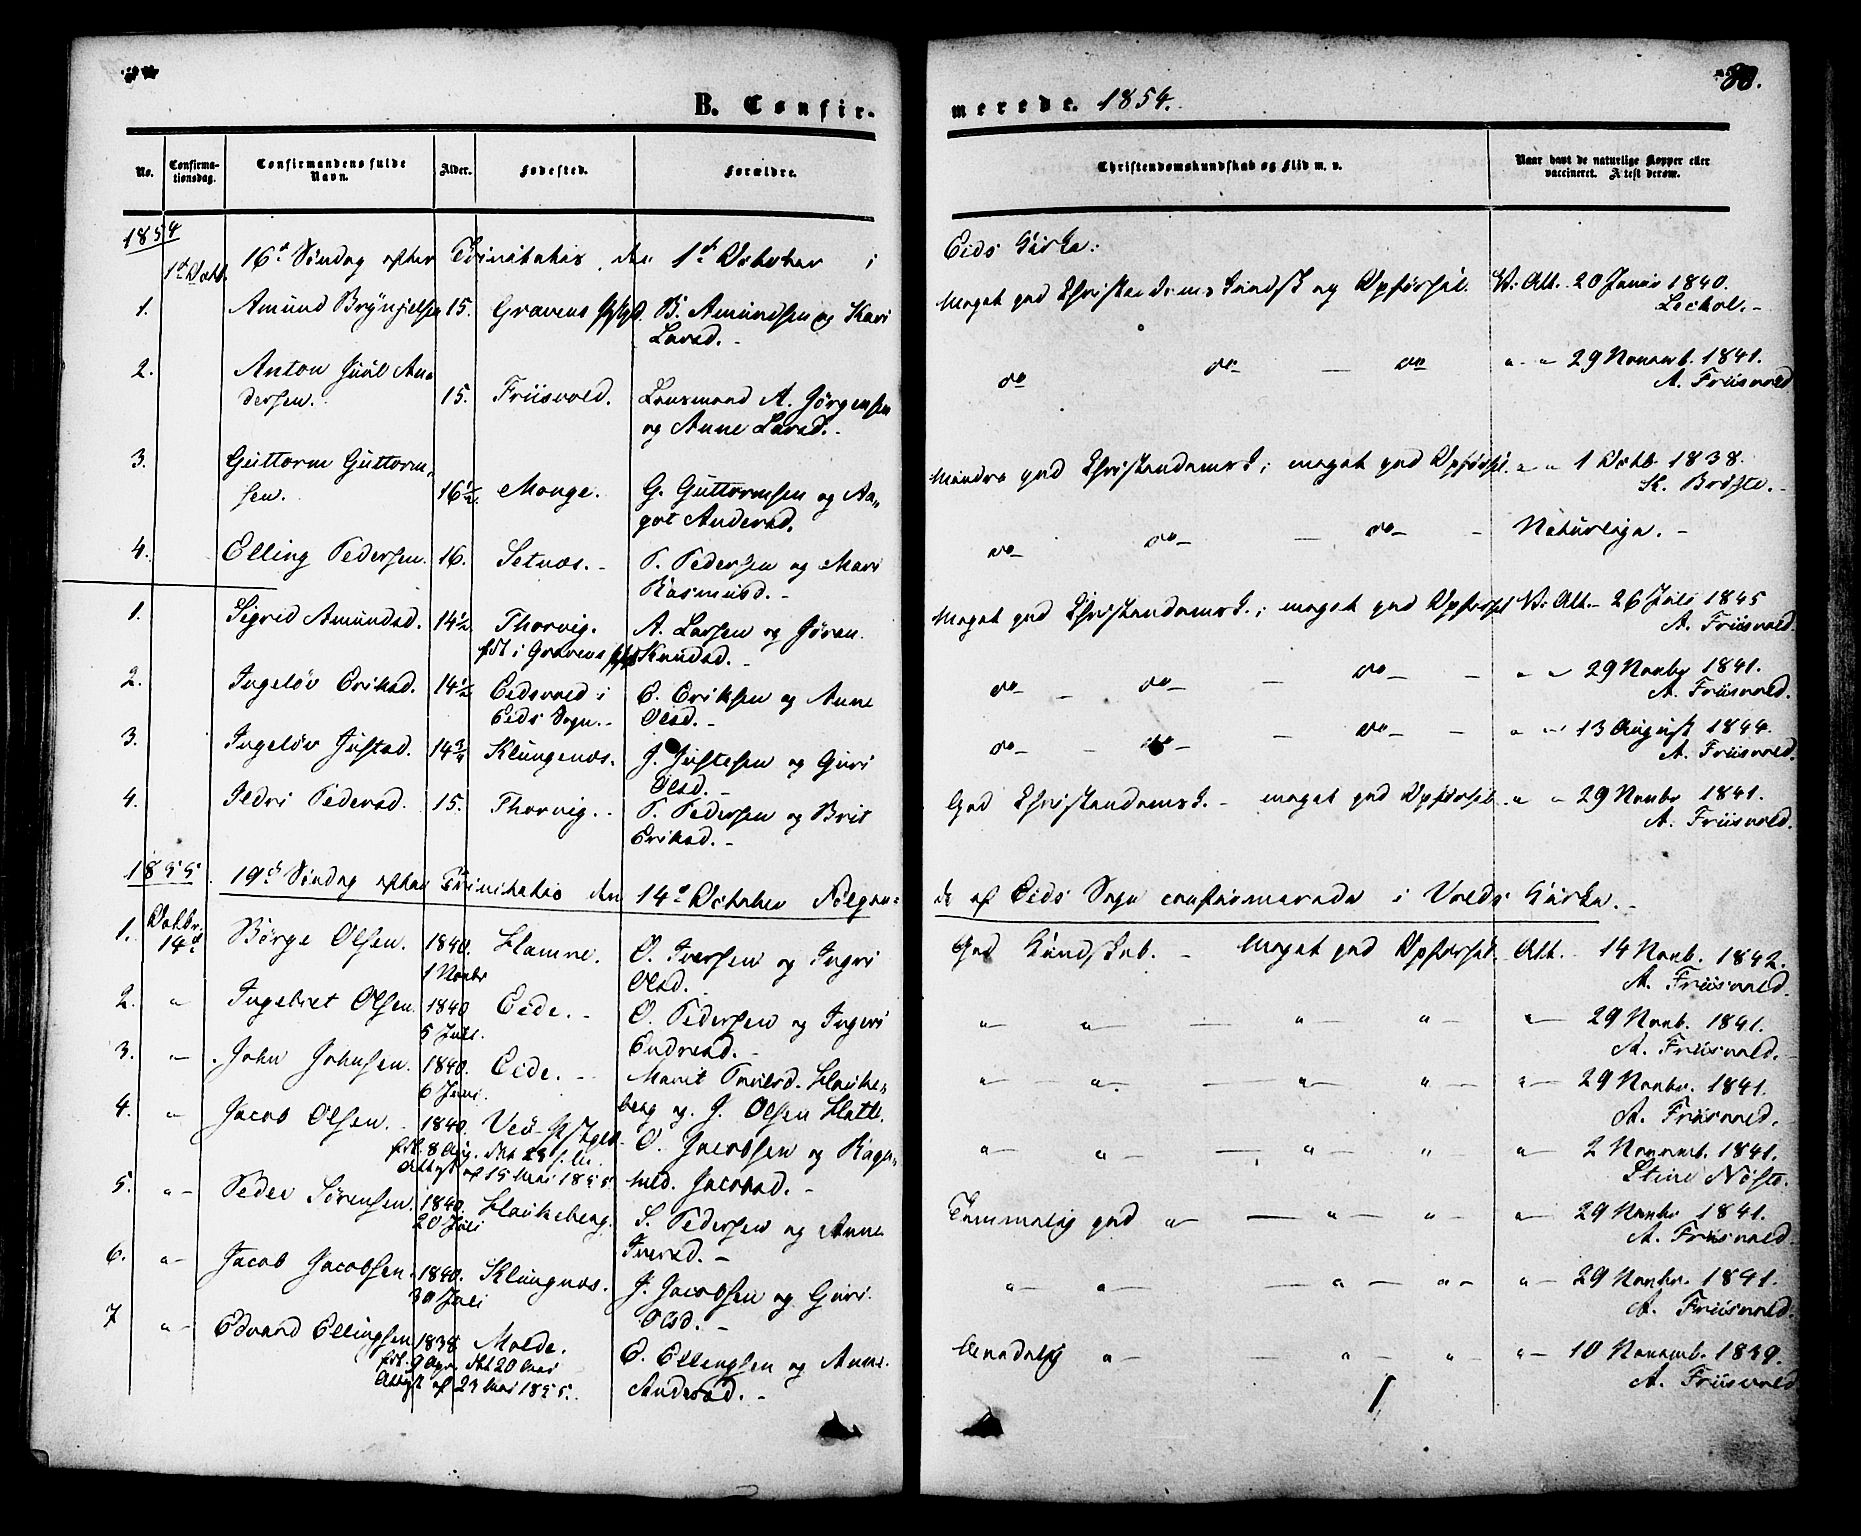 B. Confir-
merede. 1854.
88.
No.
Confirma-
tionsdag.
Confirmandens fulde
Navn.
Alder.
Fødested.
Forældre.
Christendomskundskab og Flid m. v.
Naar havt de naturlige Kopper eller
vaccineret. Attest derom.
1854
1st Octb. 16d Søndag efter Trinitatis, den 1st October i Eids Kirke:
1. Amund Brynjelsen 15. Gravens B. Amundsen og Kari Meget god Christendomskundsk og Opførsel. V. Att. 20 Januar 1840.
Larsd. -
2. Anton Juul An- do do - do " " 29 Novemb. 1841.
dersen. 15. Friisvold. Lensmand A. Jørgensen A. Friisvold
og Anne Larsd. -
3. Guttorm Guttorm- Mindre god Christendomsk; meget god Opførsel. " " 1 Octb 1838.
sen. 16½ Monge. G. Guttormsen og Aa- K. Brøste. -
got Andersd.
4. Elling Pedersen. 16. Setnæs. - P. Pedersen og Mari do do - do - Naturlige. -
Rasmusd. -
1. Sigrid Amundsd. 14½ Thorvig. A. Larsen og Jøren Meget god Christendomsk.; meget god Opførsel V. Att. - 26 Juli 1845
fdt i Gravens Knudsd. - A. Friisvold.
2. Ingeløv Eriksd. 14½ Eidsvold i E. Eriksen og Anne do - do - do - " " 29 Novbr 1841.
Eids Sogn. - Olsd. - A. Friisvold.
3. Ingeløv Justsd. 14¾ Klungenæs. J. Justesen og Guri do - do - do - " " 13 August 1844.
Olsd. - A. Friisvold.
4. Ildri Pedersd. 15. Thorvig. - P. Pedersen og Brit God Christendomsk. - meget god Opførsel. " " 29 Novbr 1841.
Eriksd. - A. Friisvold.
1855. 19d Søndag efter Trinitatis den 14d October Følgen- de af Eids Sogn confirmerede i Volds Kirke. -
1. Octbr. 14d Børge Olsen. 1840. Hamre. O. Iversen og Ingri God Kundskab. - Meget god Opførsel. Att. 14 Novb. 1842.
1 Novbr Olsd. A. Friisvold.
2. " Ingebret Olsen. 1840 Eide. - O. Pedersen og Ingeri " " - " " - " - 29 Novb. 1841.
5 Juli. Endresd. - A. Friisvold. -
3. " - John Johnsen. 1840. Eide. - Marit Troelsd. Hauke- " - " - " - " - " - 29 Novbr. 1841.
6 Juni. berg og J. Olsen Hatle. A. Friisvold.
4. " Jacob Olsen. - 1840. Veø Pstgd. O. Jacobsen og Ragn- " - " - " - " - " - 2 Novemb. 1841.
fdt. 8 Aug. dbt 23 s. M. hild. Jacobsd. - Stine Nøste.
Attest af 15 Mai 1855.
5. " - Peder Sørensen. 1840. Haukeberg. S. Pedersen og Anne Temmelig god " - " - " - " - 29 Novbr 1841.
20 Juli Iversd. - A. Friisvold.
6. " - Jacob Jacobsen. 1840. Klungnæs. J. Jacobsen og Guri " - " - " - " - " - 29 Novbr. 1841.
30 Juli Olsd. - A. Friisvold.
7 " - Edvard Ellingsen 1838 Molde. E. Ellingsen og Anne " - " - " - " - 10 Novemb. 1839.
dbt 20 Mai Andersd. - A. Friisvold
Attest af 23 Mai 1855.